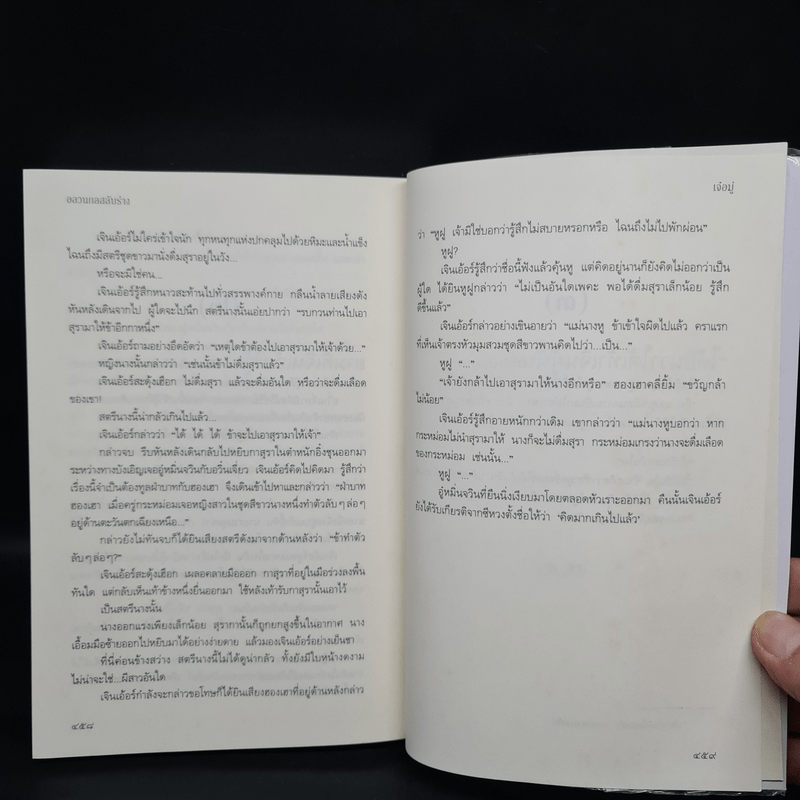 อลวนกลสลับร่าง
เจินเอ้อร์ไม่ใคร่เข้าใจนัก ทุกหนทุกแห่งปกคลุมไปด้วยหิมะและน้ำแข็ง
ไฉนถึงมีสตรีชุดขาวมานั่งดื่มสุราอยู่ในวัง...
หรือจะมิใช่คน...
เจินเอ้อร์รู้สึกหนาวสะท้านไปทั่วสรรพางค์กาย กลืนน้ำลายเสียงดัง
หันหลังเดินจากไป ผู้ใดจะไปนึก สตรีนางนั้นเอ่ยปากว่า “รบกวนท่านไปเอา
สุรามาให้ข้าอีกกาหนึ่ง”
เจินเอ้อร์ถามอย่างอึดอัดว่า “เหตุใดข้าต้องไปเอาสุรามาให้เจ้าด้วย...”
หญิงนางนั้นกล่าวว่า “เช่นนั้นข้าไม่ดื่มสุราแล้ว”
เจินเอ้อร์สะดุ้งเฮือก ไม่ดื่มสุรา แล้วจะดื่มอันใด หรือว่าจะดื่มเลือด
ของเขา!
สตรีนางนี้น่ากลัวเกินไปแล้ว...
เจินเอ้อร์กล่าวว่า “ได้ ได้ ได้ ข้าจะไปเอาสุรามาให้เจ้า”
กล่าวจบ รีบหันหลังเดินกลับไปหยิบสุราในตำหนักอิ่งชุนออกมา
ระหว่างทางบังเอิญเจออู๋หมิ่นจวินกับอวิ๋นเจี่ยว เจินเอ้อร์คิดไปคิดมา รู้สึกว่า
เรื่องนี้จำเป็นต้องทูลฝ่าบาทกับฮองเฮา จึงเดินเข้าไปหาและกล่าวว่า “ฝ่าบาท
ฮองเฮา เมื่อครู่กระหม่อมเจอหญิงสาวในชุดสีขาวนางหนึ่งทำตัวลับๆล่อๆ
อยู่ด้านตะวันตกเฉียงเหนือ...”
กล่าวยังไม่ทันจบก็ได้ยินเสียงสตรีดังมาจากด้านหลังว่า “ข้าทำตัว
ลับๆล่อๆ?”
เจินเอ้อร์สะดุ้งเฮือก เผลอคลายมือออก กาสุราที่อยู่ในมือร่วงลงพื้น
ทันใด แต่กลับเห็นเท้าข้างหนึ่งยื่นออกมา ใช้หลังเท้ารับกาสุรานั้นเอาไว้
เป็นสตรีนางนั้น
นางออกแรงเพียงเล็กน้อย สุรากานั้นก็ถูกยกสูงขึ้นในอากาศ นาง
เอื้อมมือซ้ายออกไปหยิบมาได้อย่างง่ายดาย แล้วมองเจินเอ้อร์อย่างเย็นชา
ที่นี่ค่อนข้างสว่าง สตรีนางนี้ไม่ได้ดูน่ากลัว ทั้งยังมีใบหน้างดงาม
ไม่น่าจะใช่...ผีสาวอันใด
เจินเอ้อร์กำลังจะกล่าวขอโทษก็ได้ยินเสียงฮองเฮาที่อยู่ด้านหลังกล่าว
๔๕๘
เจ๋อมู่
ว่า “หูฝู เจ้ามิใช่บอกว่ารู้สึกไม่สบายหรอกหรือ ไฉนถึงไม่ไปพักผ่อน”
หูฝู?
เจินเอ้อร์รู้สึกว่าชื่อนี้ฟังแล้วคุ้นหู แต่คิดอยู่นานก็ยังคิดไม่ออกว่าเป็น
ผู้ใด ได้ยินหูฝูกล่าวว่า “ไม่เป็นอันใดเพคะ พอได้ดื่มสุราเล็กน้อย รู้สึก
ดีขึ้นแล้ว”
เจินเอ้อร์กล่าวอย่างเขินอายว่า “แม่นางหู ข้าเข้าใจผิดไปแล้ว คราแรก
ที่เห็นเจ้าตรงหัวมุมสวมชุดสีขาวพานคิดไปว่า...เป็น...”
หูฝู “...”
“เจ้ายังกล้าไปเอาสุรามาให้นางอีกหรือ” ฮองเฮาคลี่ยิ้ม “ขวัญกล้า
ไม่น้อย”
เจินเอ้อร์รู้สึกอายหนักกว่าเดิม เขากล่าวว่า “แม่นางหูบอกว่า หาก
กระหม่อมไม่นำสุรามาให้ นางก็จะไม่ดื่มสุรา กระหม่อมเกรงว่านางจะดื่มเลือด
ของกระหม่อม เช่นนั้น...”
หูฝู “...”
อู๋หมิ่นจวินที่ยืนนิ่งเงียบมาโดยตลอดหัวเราะออกมา คืนนั้นเจินเอ้อร์
ยังได้รับเกียรติจากซีหวงตั้งชื่อให้ว่า ‘คิดมากเกินไปแล้ว’
๔๕๙